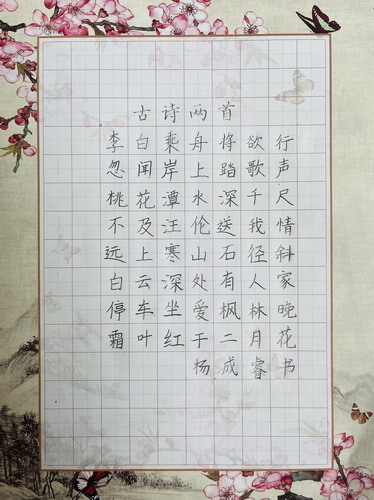 古诗两首
李白乘舟将欲行
忽闻岸上踏歌声
桃花潭水深千尺
不及汪伦送我情
远上寒山石径斜
白云深处有人家
停车坐爱枫林晚
霜叶红于二月花
杨成睿书